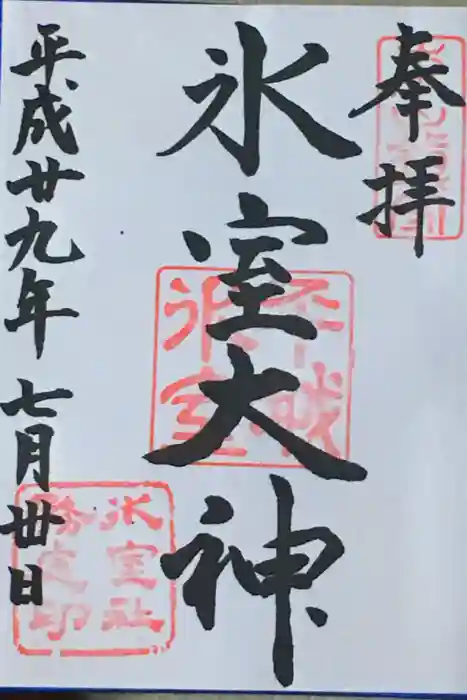 奉拝
氷室大神
平成廿九年七月丗日
氷室社
務之印